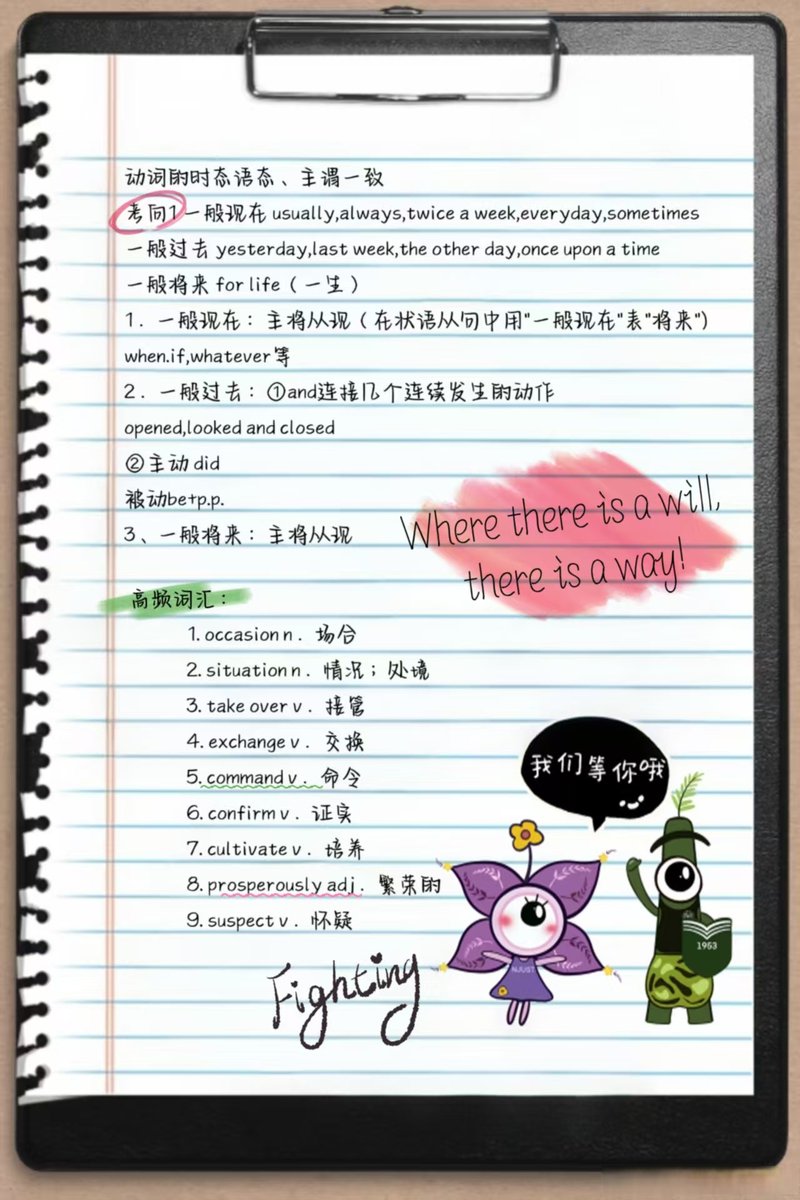 动词的时态语态、主谓一致
考向1一般现在 usually,always,twice a week,everyday,sometimes
一般过去 yesterday,last week,the other day,once upon a time
一般将来 for life（一生）
1．一般现在：主将从现（在状语从句中用"一般现在"表"将来"）
when.if,whatever等
2．一般过去：①and连接几个连续发生的动作
opened,looked and closed
②主动 did
被动be+p.p.
3、一般将来：主将从现
Where there is a will,
there is a way!
高频词汇：
1. occasion n．场合
2. situation n．情况；处境
3. take over v．接管
4. exchange v．交换
5. command v．命令
6. confirm v．证实
7. cultivate v．培养
8. prosperously adj．繁荣的
9. suspect v．怀疑
我们等你哦
1953
NJUST
Fighting